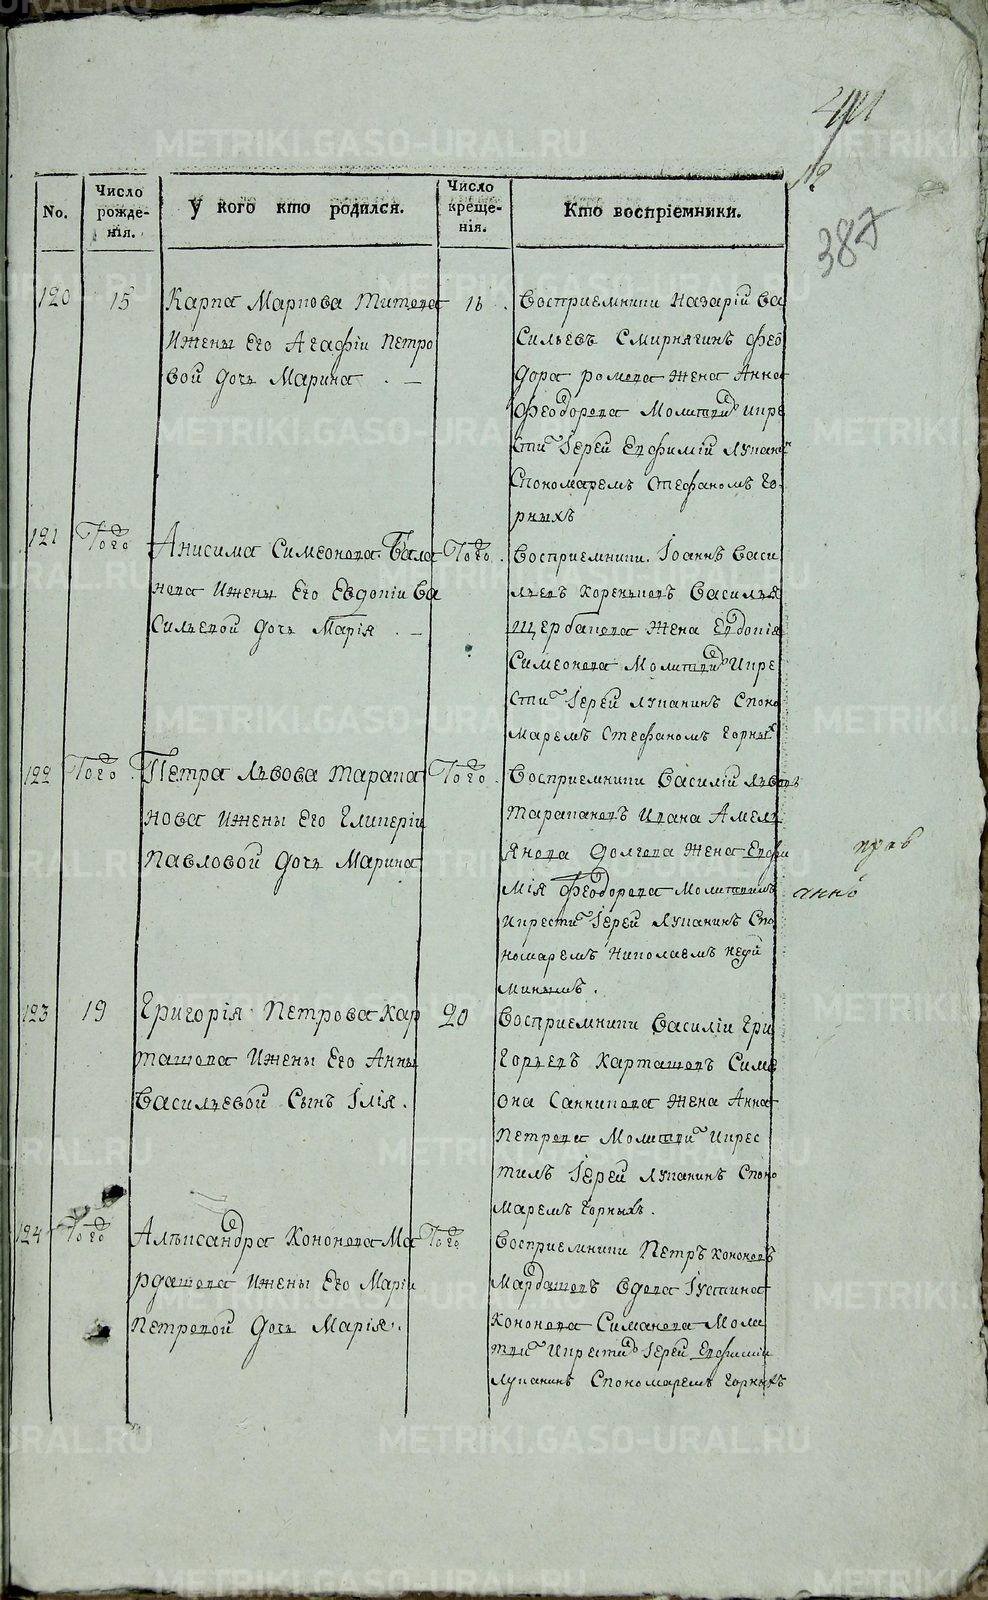 387
No.
Число рожде-нія.
У кого кто родился.
Число креще-нія.
Кто воспріемники.
120
15
Карпа Маркова Титова
Ижены Его Агафіи Петро
вой дочь Марина . —
16 .
Восприемники Назарій Ва
Сильевъ Смирнягинъ Фео
дора ромова жена Анна
Феодорова Молитвил Икре
стил Іерей Евфимій Лукан
Спономаремъ Стефаномъ Го-
рныхъ
121
Того
Анисима Симеонова Бала
нова Ижены Его Евдокіи Ва
Сильевой дочь Марія . —
Того .
Восприемники . Іоаннъ Васи
льевъ Кореньковъ Василья
Щербакова Жена Евдокія
Симеонова Молитвил Икре
стил Іерей Луканинъ Споно
Маремъ Стефаномъ Горных
122
Того .
Петра Львова Тарака
нова Ижены Его Гликеріи
Павловой дочь Марина
Того .
Восприемники Василій Львовъ
Таракановъ Ивана Амель
Янова Долгова Жена Евфи
мія Феодорова Молитвилъ
Икрестил Іерей Луканинъ Спо
номаремъ Николаемъ Неуй
минымъ .
прав
анно
123
19
Григорія Петрова Кар
ташова Ижены Его Анны
Васильевой Сынъ Ілія .
20
Восприемники Василіи Гри
Горьевъ Карташовъ Симе
она Санникова Жена Анна
Петрова Молитвил Икрес
тилъ Іерей Луканинъ Споно
Маремъ Горныхъ .
124
Того
Александра Кононова Ма
рдашова Ижены Его Маріи
Петровой Дочь Марія .
Того
Восприемники Петръ Кононовъ
Мардашовъ Вдова Іустина
Кононова Симанова Моли
твил Икрестил Іерей Евфиміи
Луканинъ Спономаремъ Горныхъ
METRIKI.GASO-URAL.RU